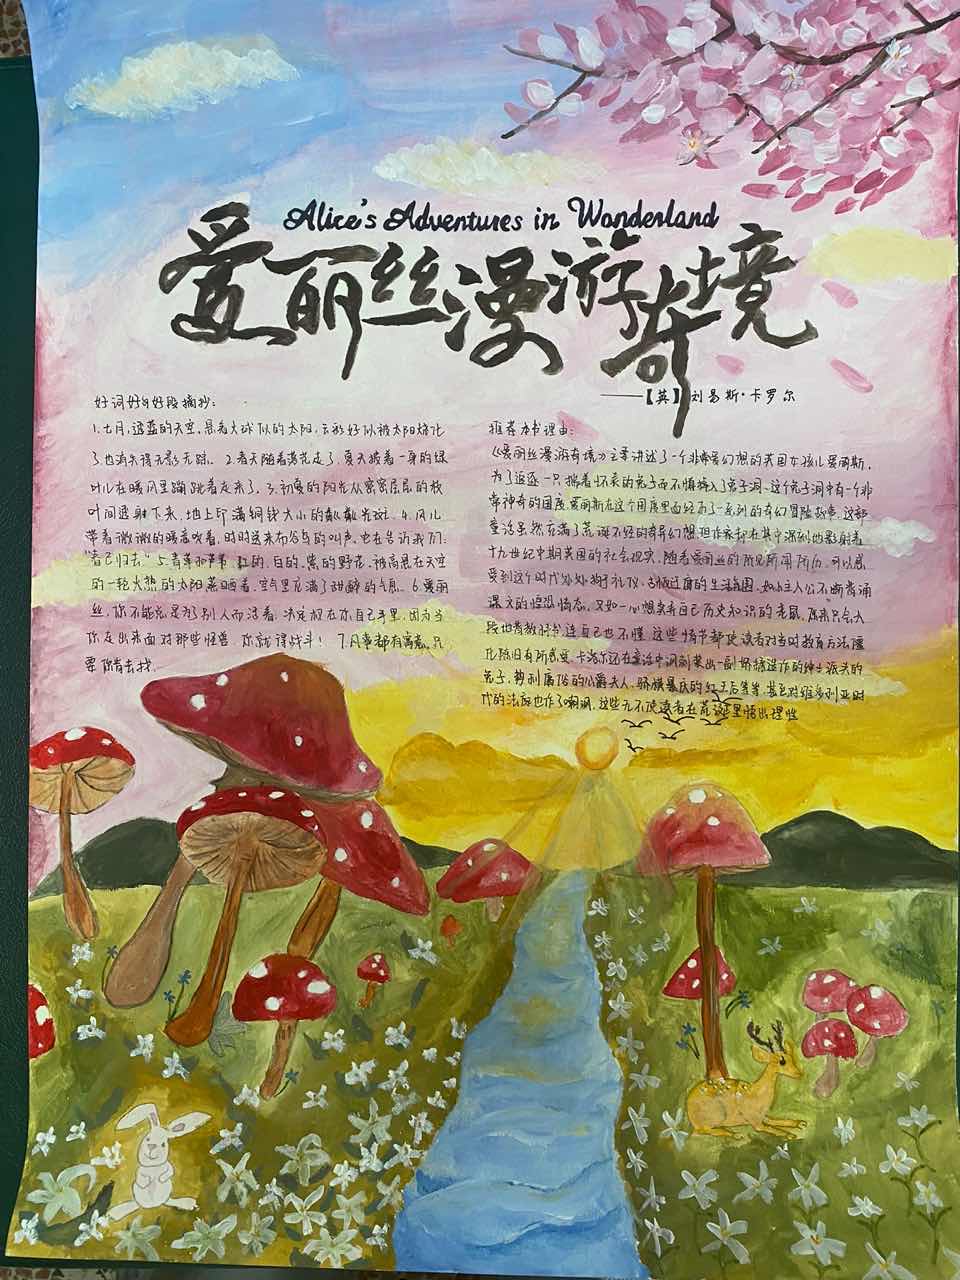 Alice's Adventures in Wonderland
爱丽丝漫游奇境
——【英】刘易斯·卡罗尔
好词好句好段摘抄:
1.七月,透蓝的天空,悬着火球似的太阳,云彩好似被太阳烧化
了,也消失得无影无踪。 2.春天随着落花走了,夏天披着一身的绿
叶儿在暖风里蹦跳着走来了。3.初夏的阳光从密密层层的枝
叶间透射下来,地上印满铜钱大小的粼粼光斑。4.风儿
带着微微的暖意吹着,时时送来布谷鸟的叫声,它在告诉我们:
"春已归去" 5.青草和 红的、白的、紫的野花,被高悬在天空
的一轮火热的太阳蒸晒着,空气里充满了甜醉的气息。6.爱丽
丝,你不能总是为了别人而活着,决定权在你自己手里,因为当
你走出来面对那些怪兽 你就得战斗! 7.凡事都有寓意,只
要你肯去找.
推荐本书理由:
《爱丽丝漫游奇境》主要讲述了一个非常爱幻想的英国女孩儿爱丽斯,
为了追逐一只揣着怀表的兔子而不慎掉入了兔子洞,这个兔子洞中有一个非
常神奇的国度,爱丽斯在这个国度里面经历了一系列的奇幻冒险故事。这部
童话虽然充满了荒诞不经的奇异幻想,但作家却在其中深刻地影射着
十九世纪中期英国的社会现实。随着爱丽丝的所见所闻所历,可以感
受到这个时代处处拘于礼仪、古板迂腐的生活氛围,如主人公不断背诵
课文的惶恐情态,又如一心想卖弄自己历史知识的老鼠,原来只会大
段地背教科书 连自己也不懂,这些情节都使读者对当时教育方法僵
化陈旧有所感受,卡洛尔还在童话中讽刺 出一副矫揉造作的绅士派头的
兔子,势利庸俗的公爵夫人,骄横暴戾的红王后等等,甚至对维多利亚时
代的法庭也作了嘲讽,这些无不使读者在荒诞里悟出理性